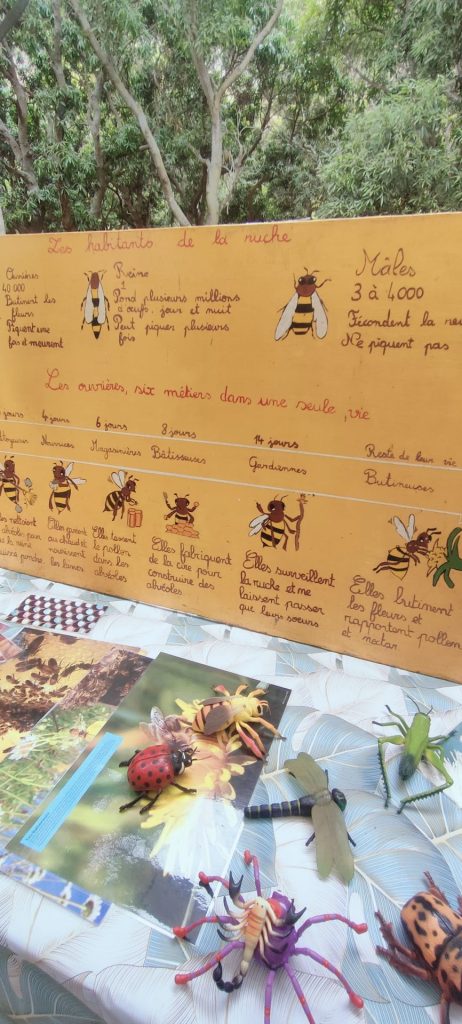 Les habitants de la ruche
Ouvrières
40 000
Butinent les
fleurs
Piquent une
fois et meurent
Reine
1
Pond plusieurs millions
d'œufs jour et nuit
Peut piquer plusieurs
fois
Mâles
3 à 4000
Fécondent la
Ne piquent pas
Les ouvrières, six métiers dans une seule vie
jours
Nettoyeuses
Elles nettoient
alvéole pour
la reine
puisse pondre.
4 jours
Nourrices
Elles
au chaud et
nourrissent
les larves
6 jours
Magasinières
Elles tassent
le pollen
dans les
alvéoles
8 jours
Bâtisseuses
Elles fabriquent
de la cire pour
construire des
alvéoles
14 jours
Gardiennes
Elles surveillent
la ruche et ne
laissent passer
que leurs soeurs
Reste de leur vie
Butineuses
Elles butinent
les fleurs et
rapportent pollen
et nectar